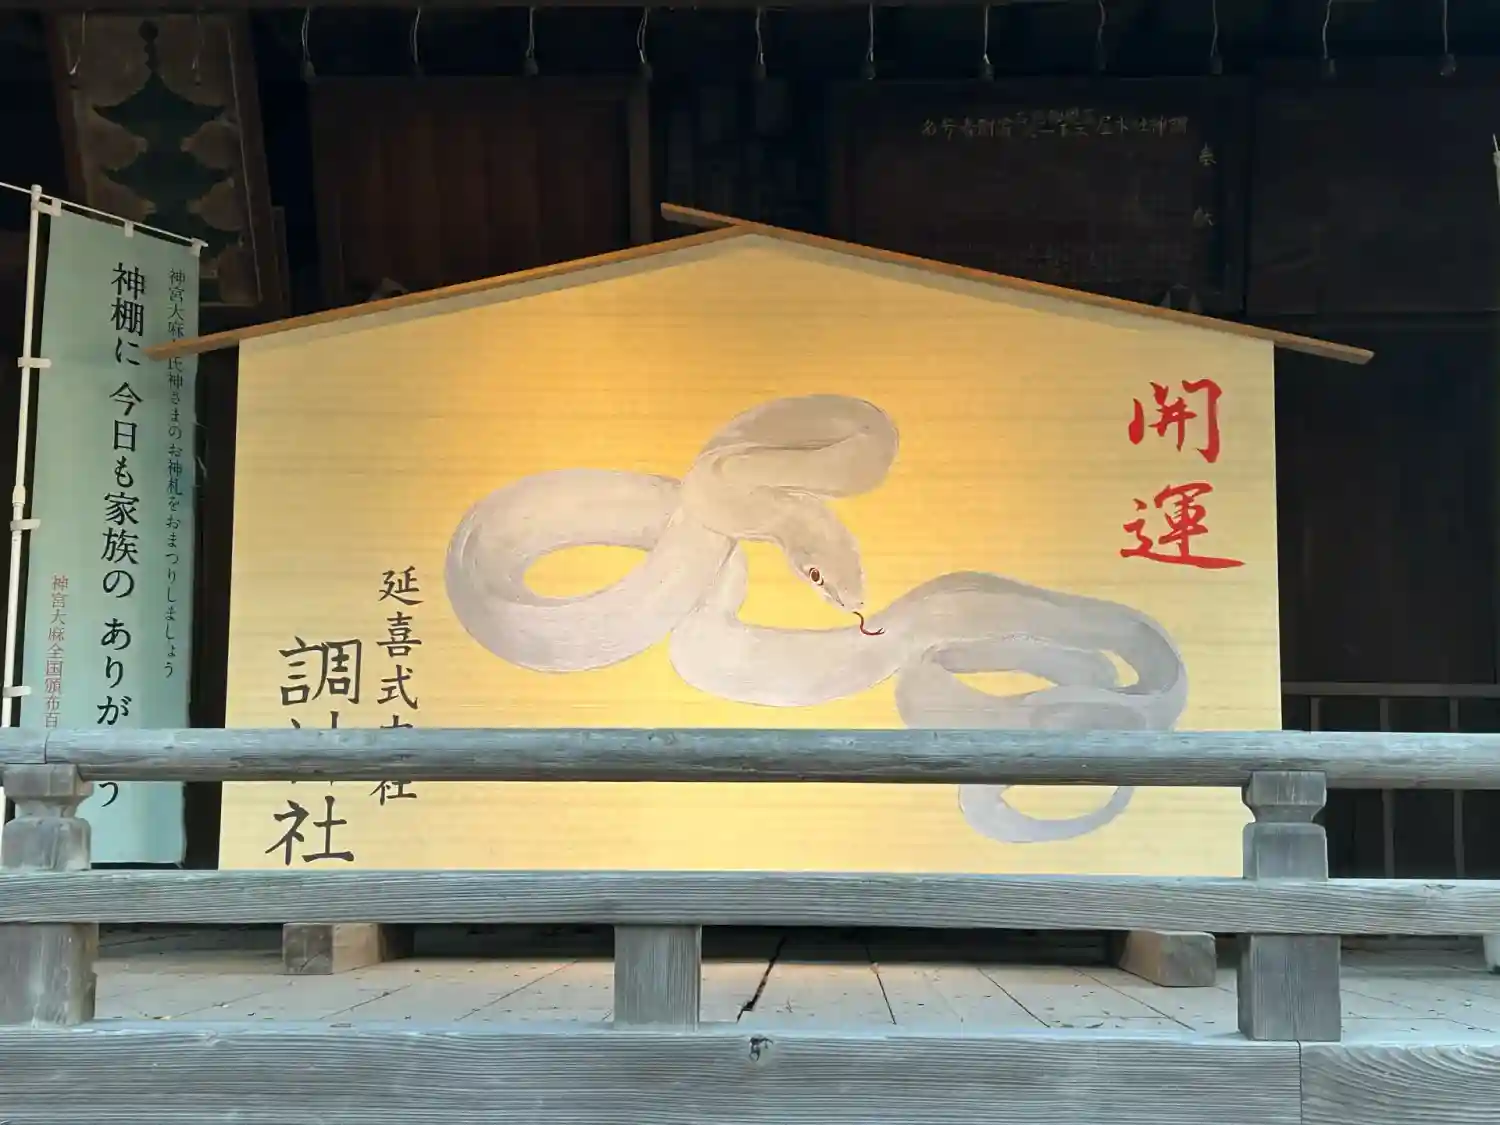 開運
延喜式内社
調神社
神宮大麻と氏神さまのお神札をおまつりしましょう
神棚に 今日も家族の ありがとう
神宮大麻全国頒布百
奉献